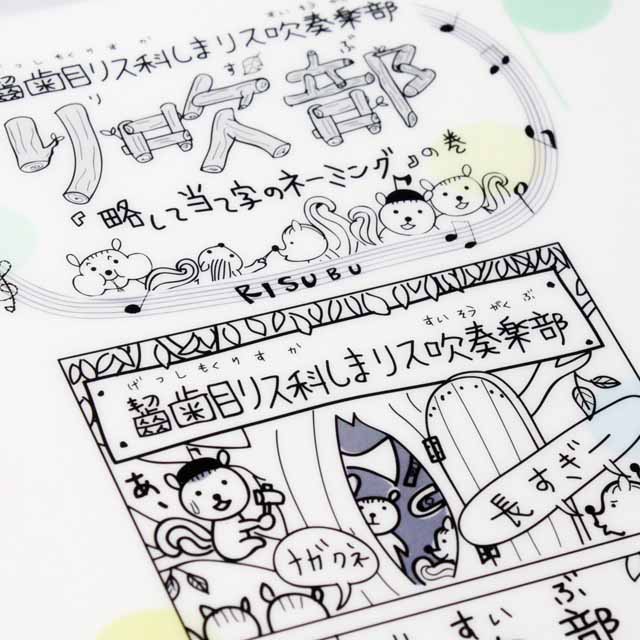 げっしもくりすか すいそうがくぶ
齧歯目リス科しまリス吹奏楽部
り ず ぶ
リロズ部
『略して当て字のネーミング』の巻
RISUBU
げっしもくりすか すいそうがくぶ
齧歯目リス科しまリス吹奏楽部
あ、
長すぎー
ナガクネ
すいぶ